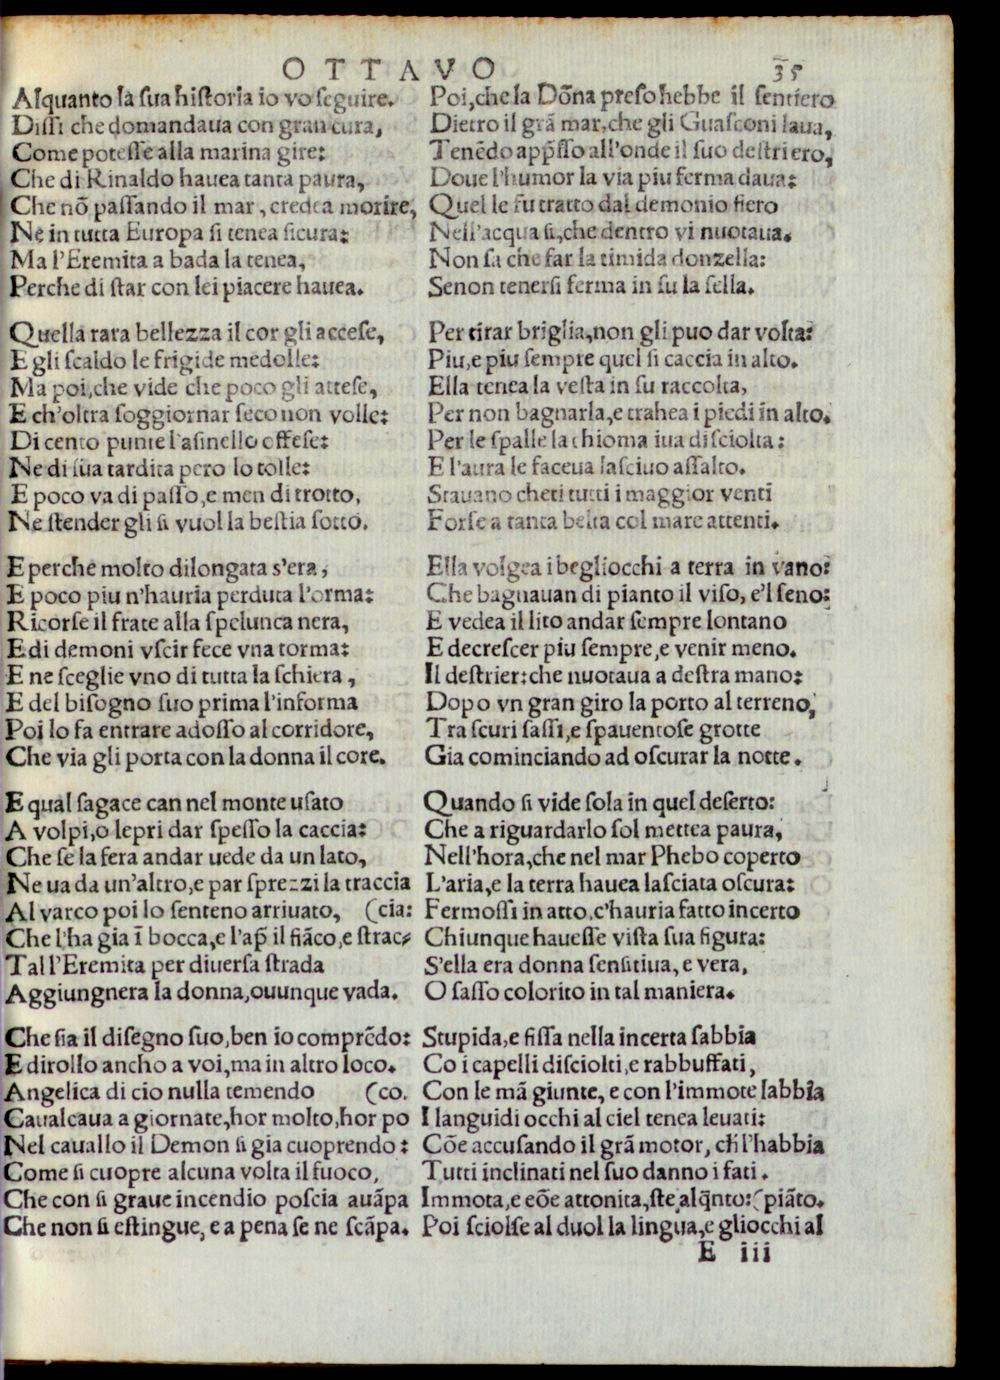 OTTAVO 35
Alquanto la sua historia io vo seguire.
Dissi che domandaua con gran cura,
Come potesse alla marina gire:
Che di Rinaldo hauea tanta paura,
Che nõ passando il mar, credea morire,
Ne in tutta Europa si tenea sicura:
Ma l'Eremita a bada la tenea,
Perche di star con lei piacere hauea.
Quella rara bellezza il cor gli accese,
E gli scaldo le frigide medolle:
Ma poi,che vide che poco gli attese,
E ch'oltra soggiornar seco non volle:
Di cento punte l'asinello offese:
Ne di sua tardita pero lo tolle:
E poco va di passo,e men di trotto,
Ne stender gli si vuol la bestia sotto.
E perche molto dilongata s'era,
E poco piu n'hauria perduta l'orma:
Ricorse il frate alla spelunca nera,
E di demoni vscir fece vna torma:
E ne sceglie vno di tutta la schiera,
E del bisogno suo prima l'informa
Poi lo fa entrare adosso al corridore,
Che via gli porta con la donna il core.
E qual sagace can nel monte usato
A volpi,o lepri dar spesso la caccia:
Che se la fera andar uede da un lato,
Ne ua da un'altro,e par sprezzi la traccia
Al varco poi lo senteno arriuato, (cia:
Che l'ha gia ĩ bocca,e l'ap̃ il fiãco,e strac-
Tal l'Eremita per diuersa strada
Aggiungnera la donna,ouunque vada.
Che sia il disegno suo,ben io comprẽdo:
E dirollo ancho a voi,ma in altro loco.
Angelica di cio nulla temendo (co.
Caualcaua a giornate,hor molto,hor po
Nel cauallo il Demon si gia cuoprendo:
Come si cuopre alcuna volta il fuoco,
Che con si graue incendio poscia auãpa
Che non si estingue,e a pena se ne scãpa.
Poi,che la Dõna preso hebbe il sentiero
Dietro il grã mar,che gli Guasconi laua,
Tenẽdo app̃sso all'onde il suo destriero,
Doue l'humor la via piu ferma daua:
Quel le fu tratto dal demonio fiero
Nell'acqua si,che dentro vi nuotaua.
Non sa che far la timida donzella:
Senon tenersi ferma in su la sella.
Per tirar briglia,non gli puo dar volta:
Piu,e piu sempre quel si caccia in alto.
Ella tenea la vesta in su raccolta,
Per non bagnarla,e trahea i piedi in alto.
Per le spalle la chioma iua disciolta:
E l'aura le faceua lasciuo assalto.
Stauano cheti tutti i maggior venti
Forse a tanta belta col mare attenti.
Ella volgea i begliocchi a terra in vano:
Che bagnauan di pianto il viso, e'l seno:
E vedea il lito andar sempre lontano
E decrescer piu sempre,e venir meno.
Il destrier:che nuotaua a destra mano:
Dopo vn gran giro la porto al terreno,
Tra scuri sassi,e spauentose grotte
Gia cominciando ad oscurar la notte.
Quando si vide sola in quel deserto:
Che a riguardarlo sol mettea paura,
Nell'hora,che nel mar Phebo coperto
L'aria,e la terra hauea lasciata oscura:
Fermossi in atto,c'hauria fatto incerto
Chiunque hauesse vista sua figura:
S'ella era donna sensitiua, e vera,
O sasso colorito in tal maniera.
Stupida,e fissa nella incerta sabbia
Co i capelli disciolti,e rabbuffati,
Con le mã giunte, e con l'immote labbia
I languidi occhi al ciel tenea leuati:
Cõe accusando il grã motor, ch̃ l'habbia
Tutti inclinati nel suo danno i fati.
Immota,e cõe attonita,ste alq̃nto: (piãto.
Poi sciolse al duol la lingua,e gliocchi al
E iii